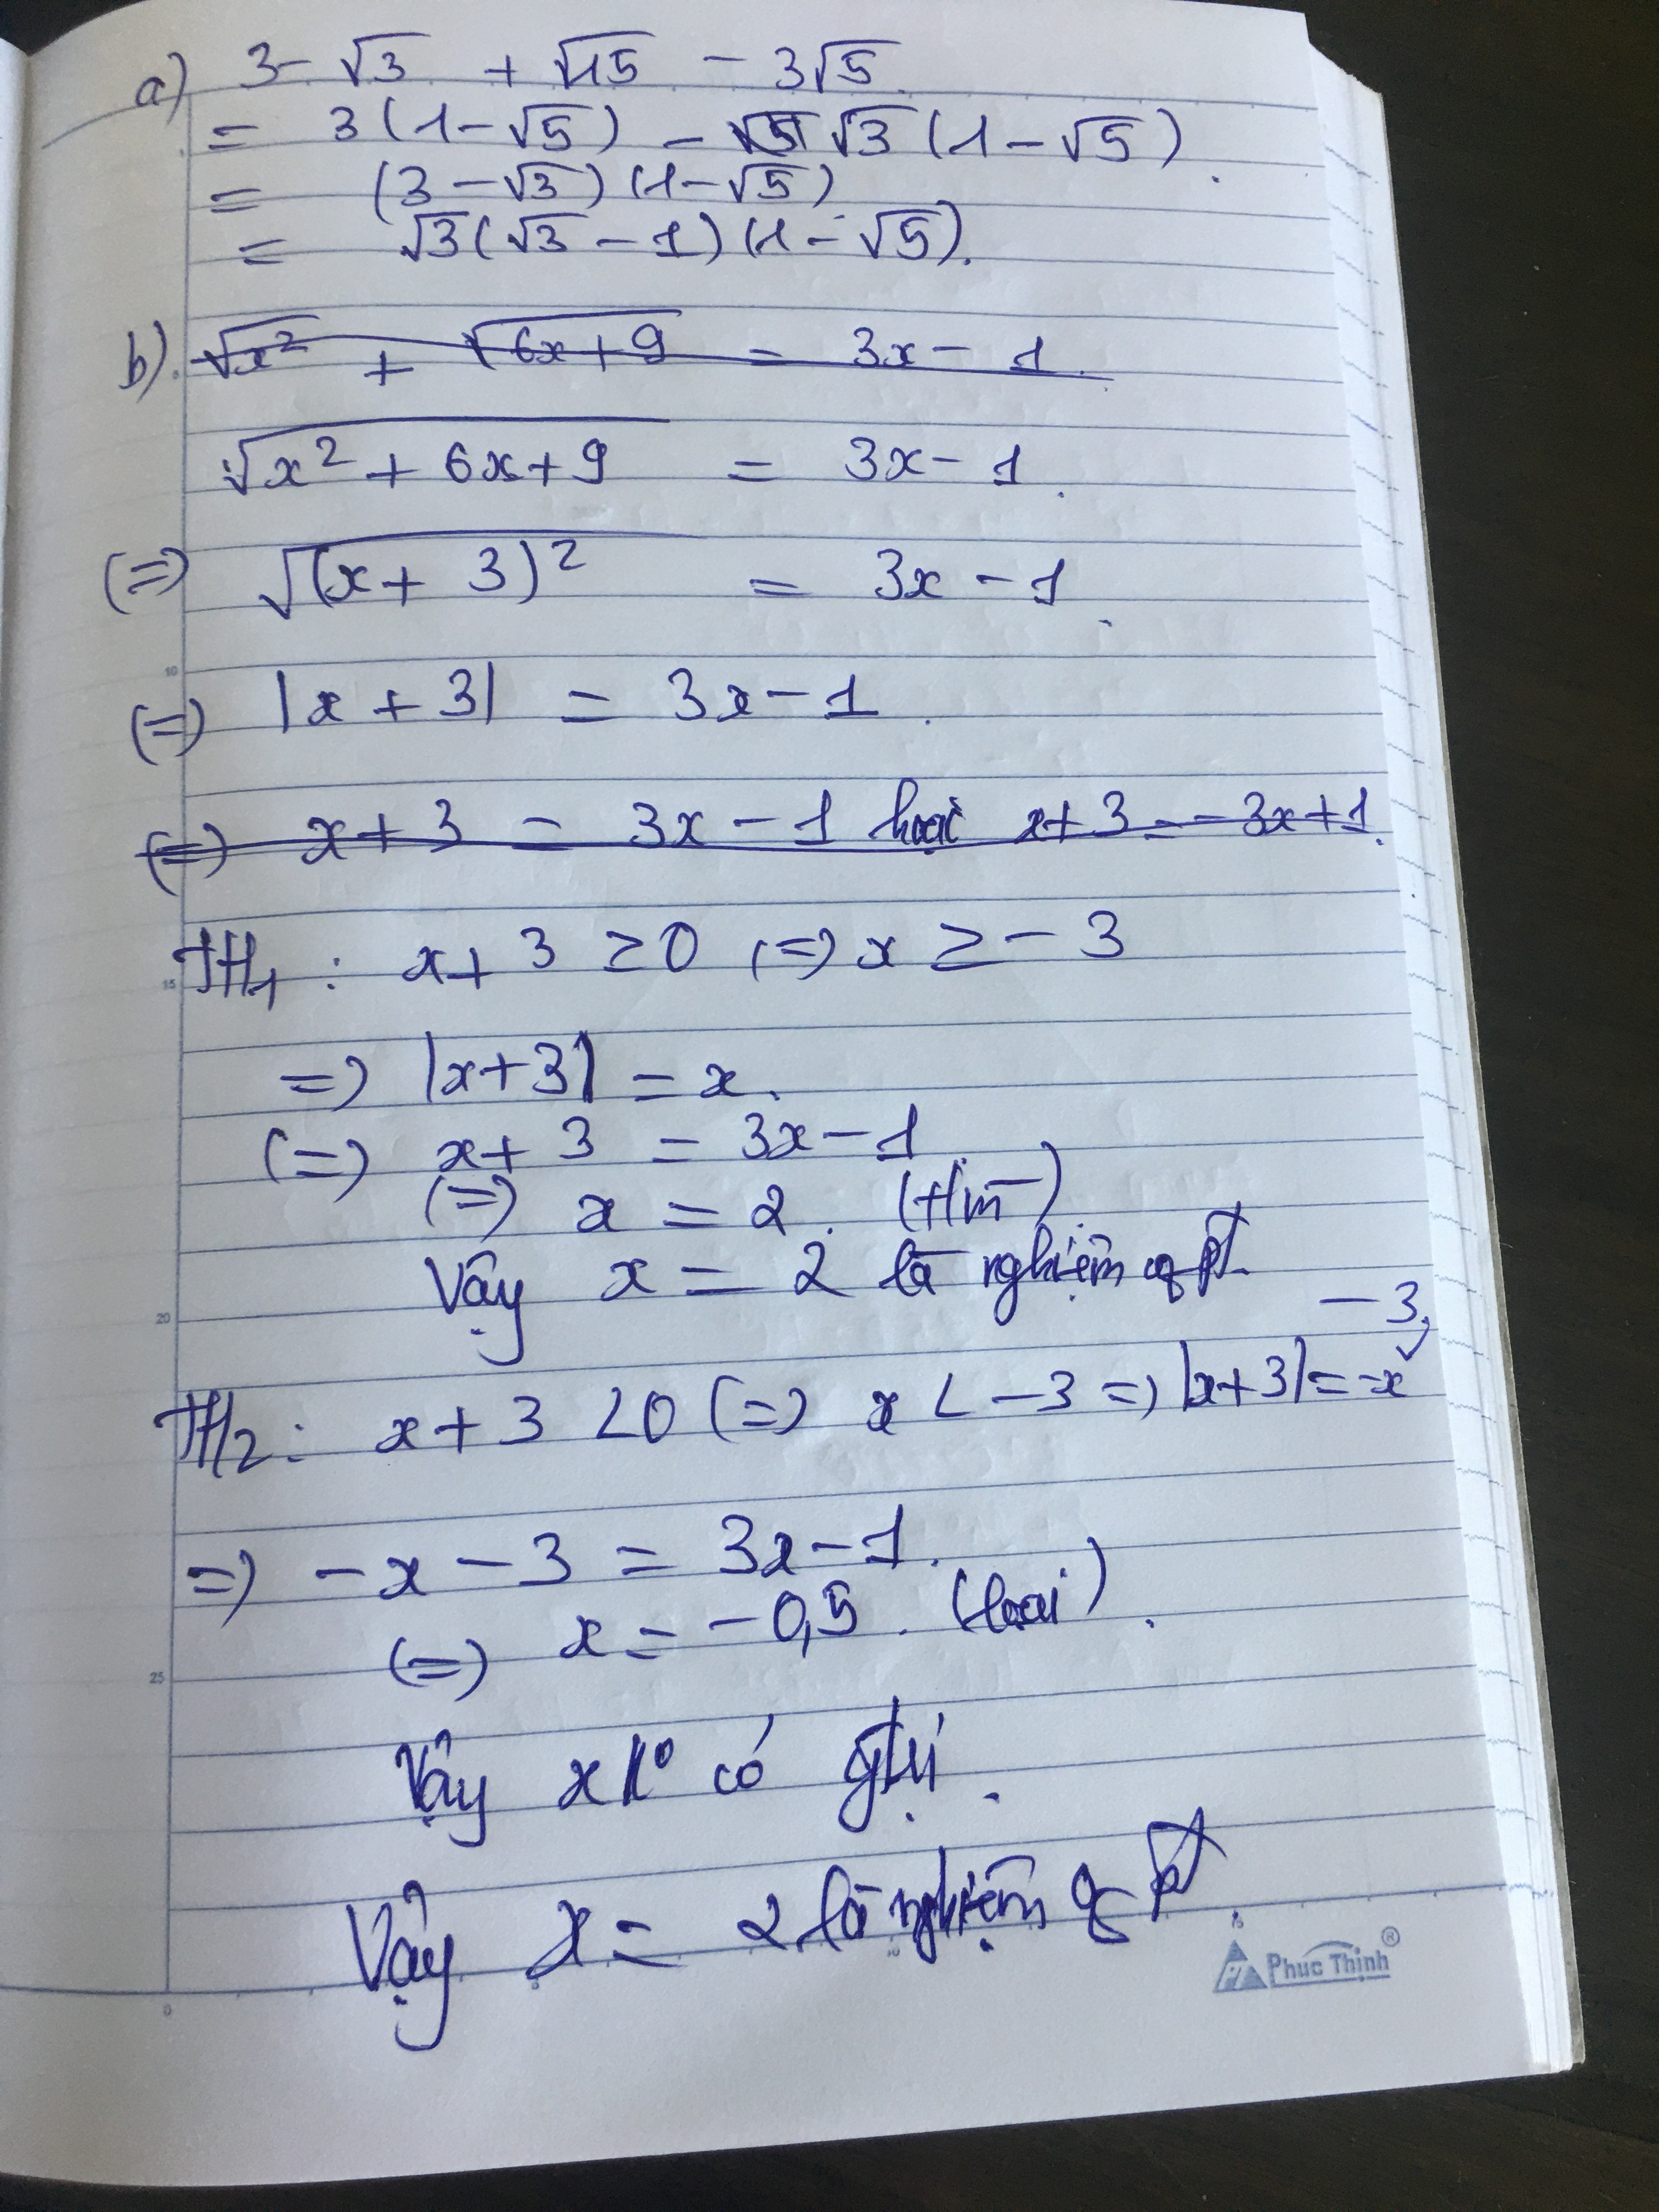 a) 3 - √3 + √15 - 3√5.
= 3(1-√5) - √3(1-√5).
= (3-√3)(1-√5).
= √3(√3-1)(1-√5).
b). √x² + √6x+9 = 3x-1.
√x²+6x+9 = 3x-1.
(=) √(x+3)² = 3x-1.
(=) |x+3| = 3x-1.
(=) x+3 = 3x-1 hoặc x+3=-3x+1.
TH1: x+3 ≥0 (=) x ≥ -3
=) |x+3| = x.
(=) x+3 = 3x-1.
(=) x = 2. (t/m)
Vậy x = 2 là nghiệm of pt.
-3,
TH2: x+3 <0 (=) x < -3 =) |x+3|=-x
=) -x-3 = 3x-1.
(=) x = -0,5. (loại).
Vậy x k⁰ có gtrị.
Vậy x = 2 là nghiệm of pt.
Phuc Thinh®